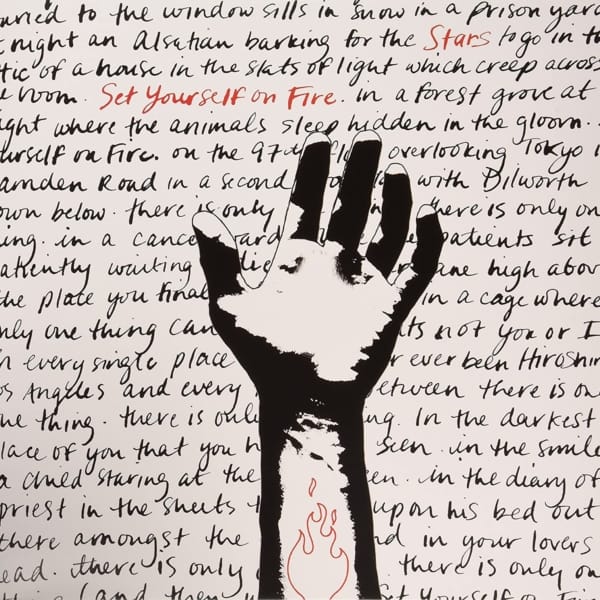 to the window sills in snow in a prison yard
night an Alsatian barking for the Stars to go in th
tic of a house in the slats of light which creep across
e room. Set Yourself on Fire. in a forest grove at
ght where the animals sleep hidden in the gloom..
urself on Fire. on the 97th overlooking Tokyo i
amden Road in a second with Dilworth
own below. there is only there is only on
ing. in a cance ard patients sit
atiently waiting die ane high abov
the place you final in a cage where
nly one thing can ts not you or I
n every single place r ever been Hiroshim
os Angeles and every etween there is on
ne thing. there is only ng. In the darkest
lace of you that you h seen. in the smile
a child staring at the en. in the diary of
priest in the sheets t upon his bed out
there amongst the d in your lovers
ead. there is only there is only o
thing (and then Set Yourself on Fire